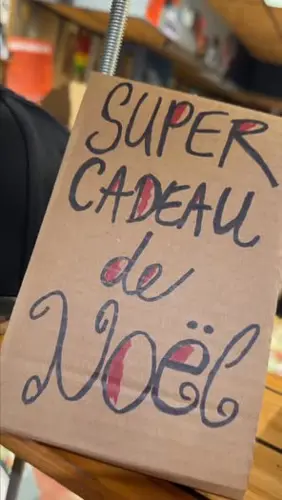 SUPER
CADEAU
de
Noël